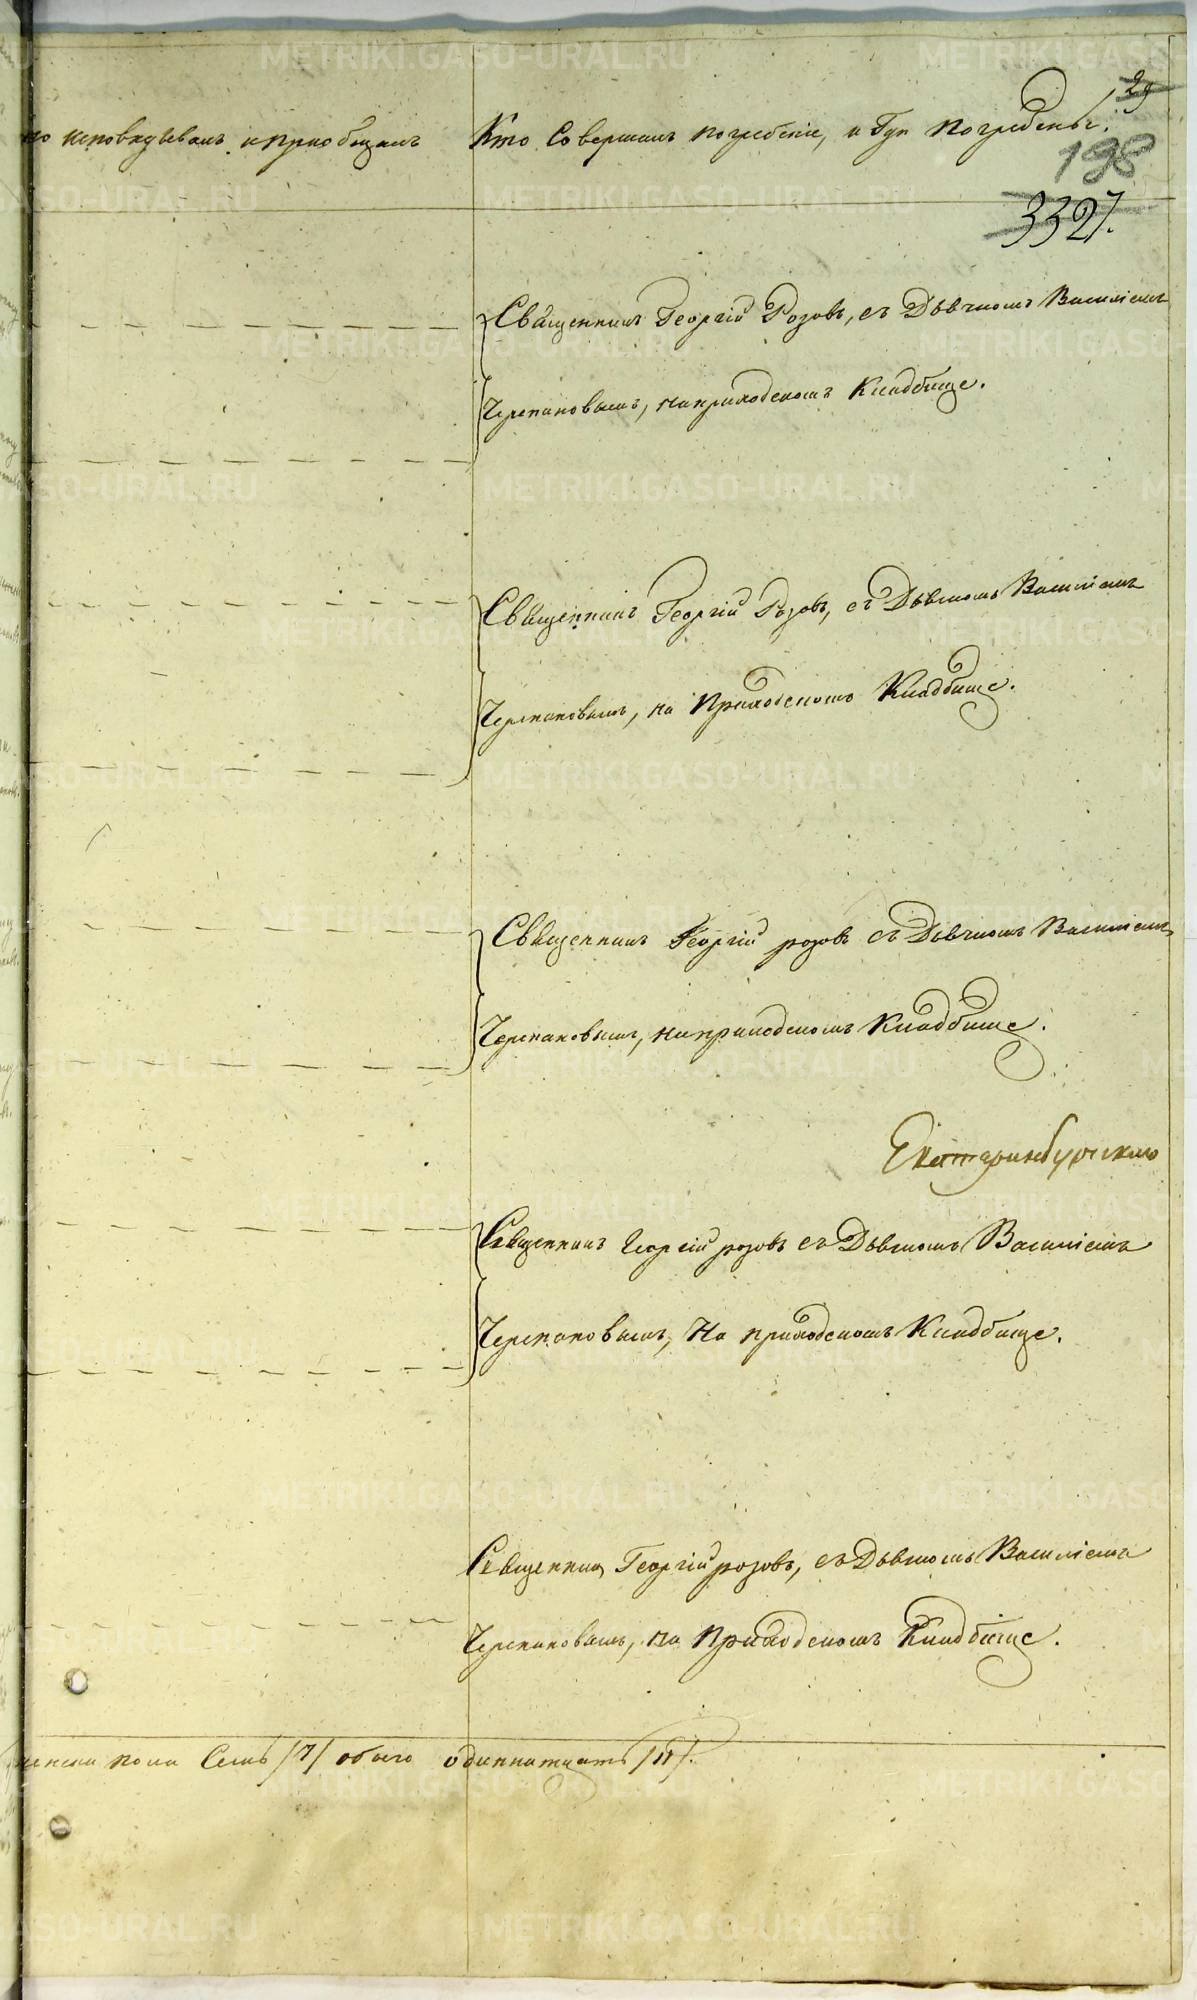 29
кто исповѣдывалъ и Приобщалъ
Кто Совершалъ погребеніе, и Гдѣ Погребены.
198
3327.
Священникъ Георгій Розовъ, съ Дьячкомъ Василіемъ
Черепановымъ, на приходскомъ Кладбище.
Священникъ Георгій Розовъ, съ Дьячкомъ Василіемъ
Черепановымъ, на Приходскомъ Кладбище.
Священникъ Георгій розовъ съ Дьячкомъ Василіемъ
Черепановымъ, на приходскомъ Кладбище.
Екатеринбургскаго
Священникъ Георгій розовъ съ Дьячкомъ Василіемъ
Черепановымъ, На приходскомъ Кладбище.
Священникъ Георгій розовъ, съ Дьячкомъ Василіемъ
Черепановымъ, на Приходскомъ Кладбище.
женска пола Семь /7/ обоего одиннатцать /11/.
METRIKI.GASO-URAL.RU